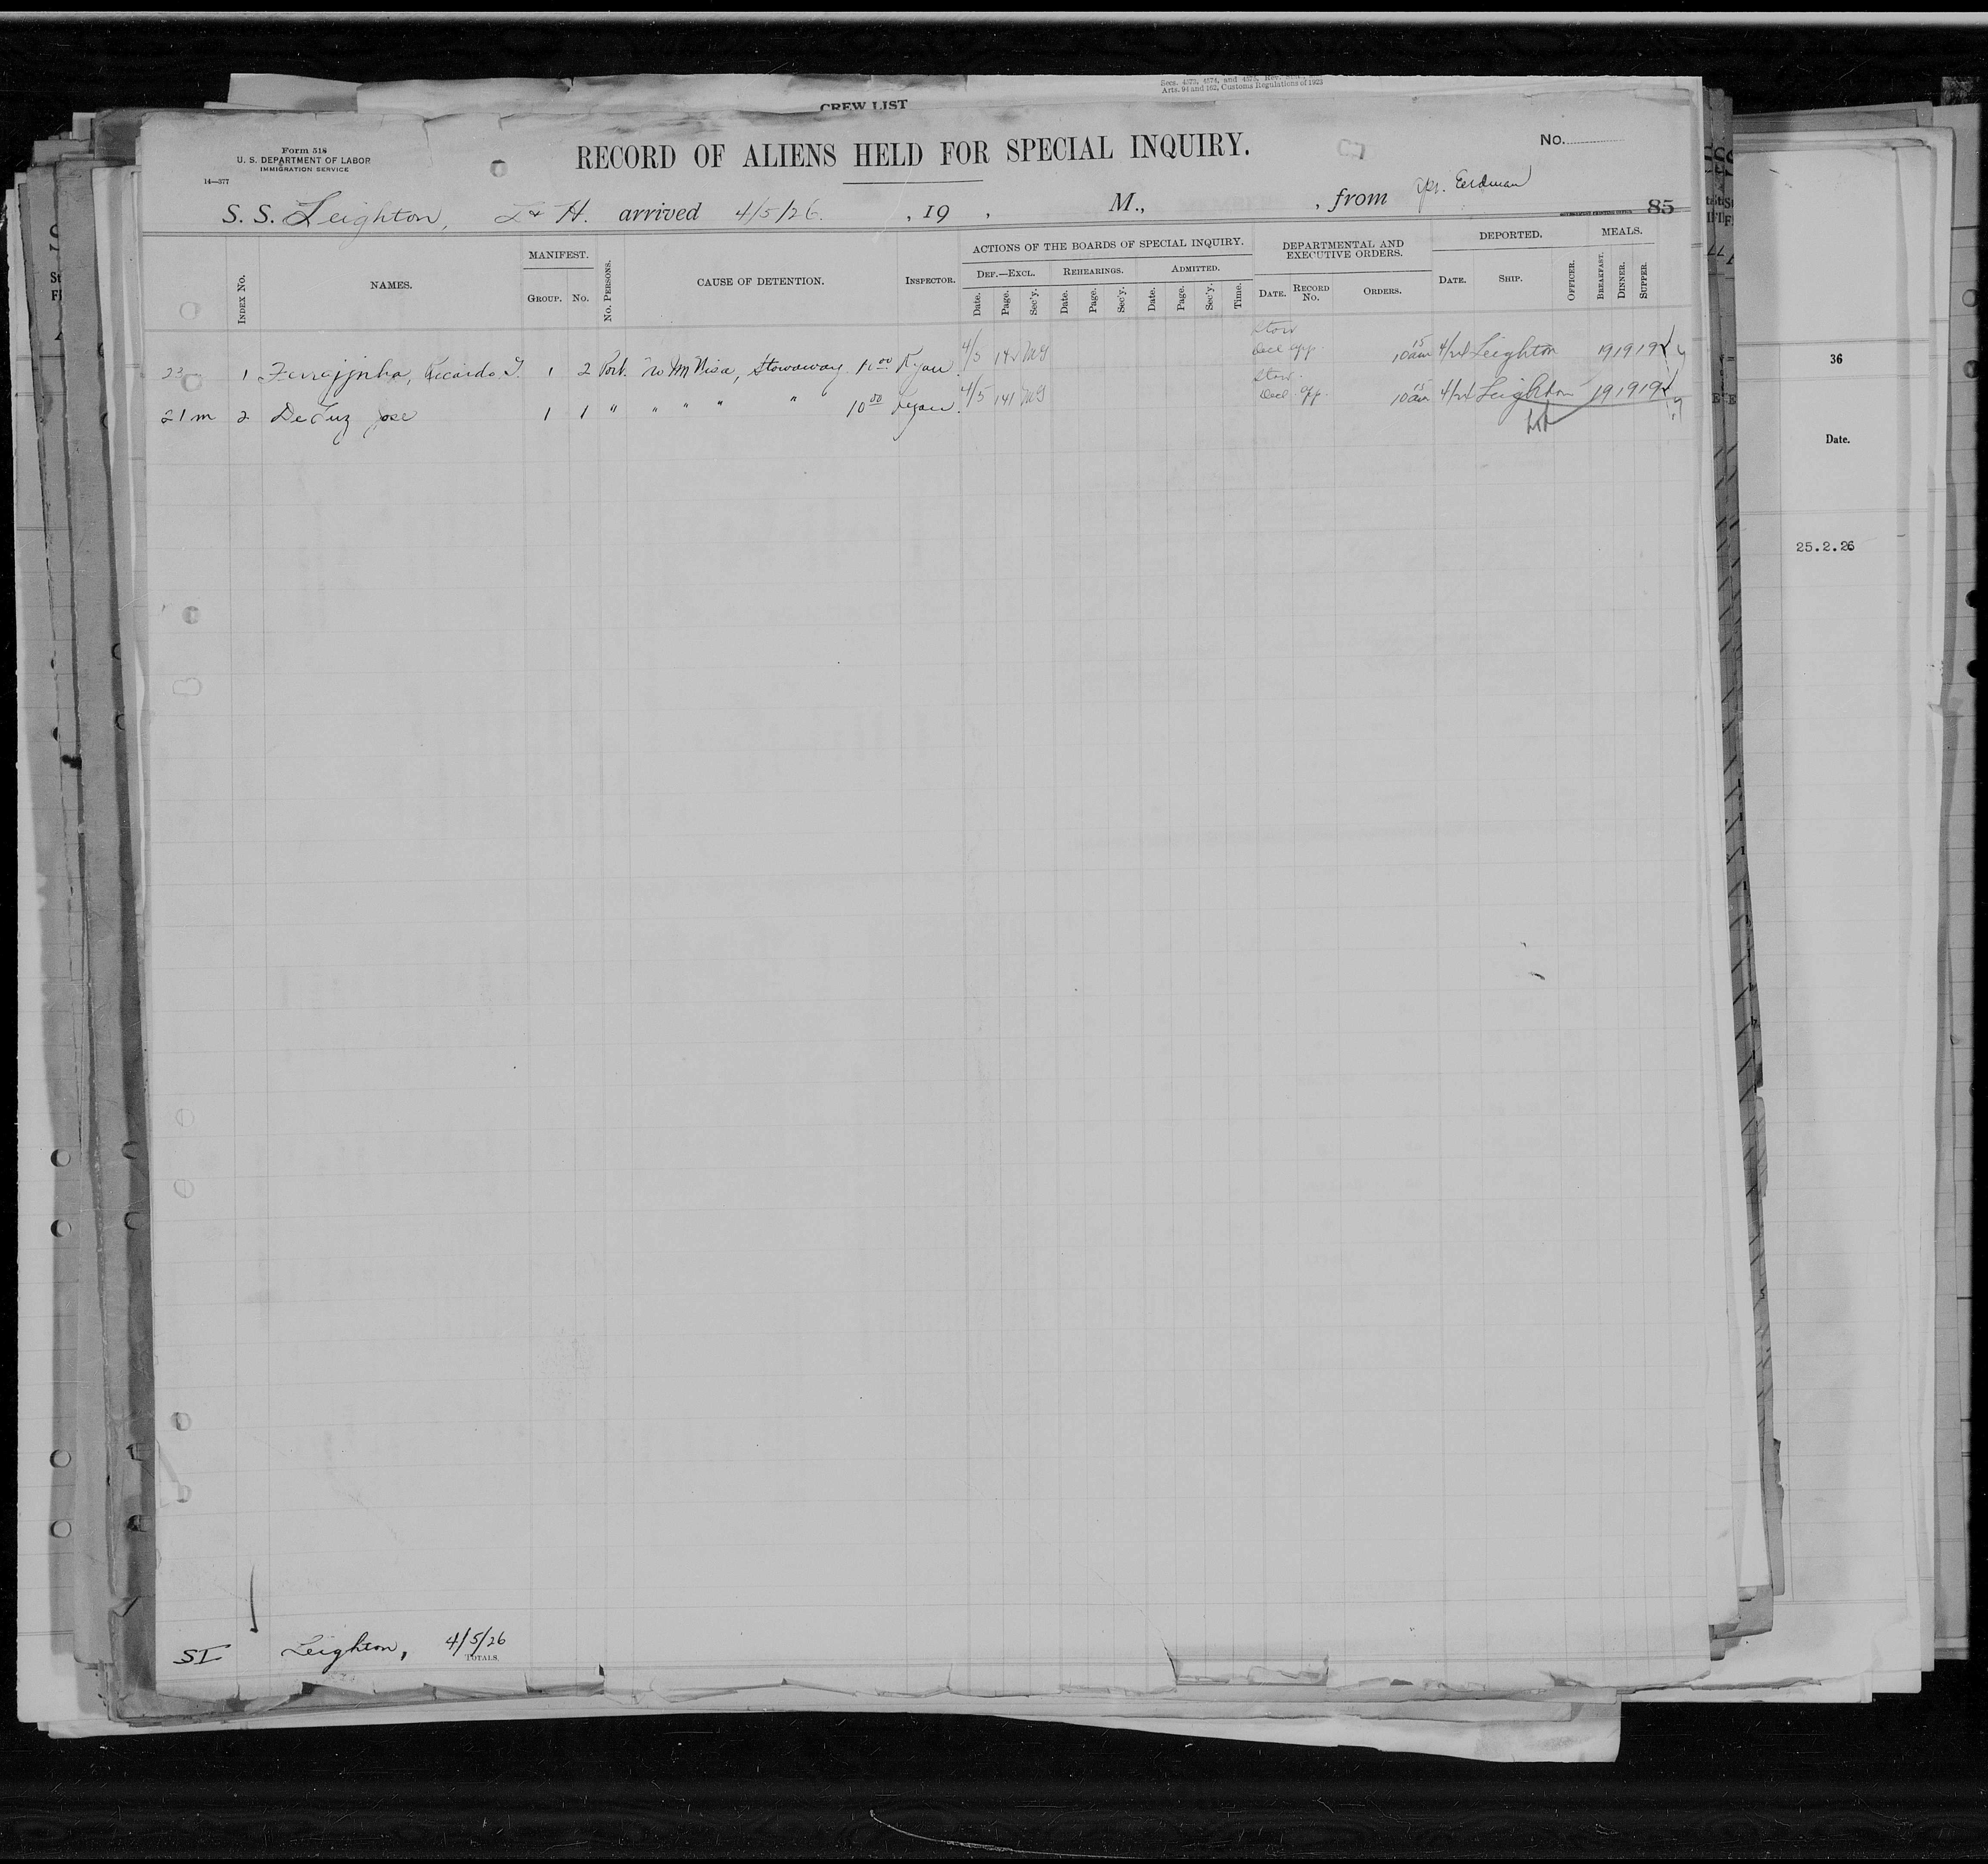 Secs. 4573, 4574, and 4575, Rev.
Arts. 94 and 162, Customs Regulations of 1923
CREW LIST
Form 518
U. S. DEPARTMENT OF LABOR
IMMIGRATION SERVICE
14—377
RECORD OF ALIENS HELD FOR SPECIAL INQUIRY.
No.
S. S. Leighton, L & H. arrived 4/5/26. , 19 , M., , from Erdman
85
INDEX No.
NAMES.
MANIFEST.
GROUP. No.
No. PERSONS.
CAUSE OF DETENTION.
INSPECTOR.
ACTIONS OF THE BOARDS OF SPECIAL INQUIRY.
DEF.—EXCL. REHEARINGS. ADMITTED.
Date. Page. Sec'y. Date. Page. Sec'y. Date. Page. Sec'y. Time.
DEPARTMENTAL AND
EXECUTIVE ORDERS.
DATE. RECORD No. ORDERS.
DEPORTED.
DATE. SHIP. OFFICER.
MEALS.
BREAKFAST. DINNER. SUPPER.
Stow
Decl app.
1 Ricardo 1 2 Port. no Im Visa, Stowaway. 10 00 Ryan. 4/5 142 10 15 am Leighton 19 19 19
Stow.
Decl. app.
21 m 2 Jose 1 1 " " " " " 10 00 Ryan. 4/5 141 10 15 am Leighton 19 19 19
SI Leighton, 4/5/26
TOTALS.
36
Date.
25.2.26